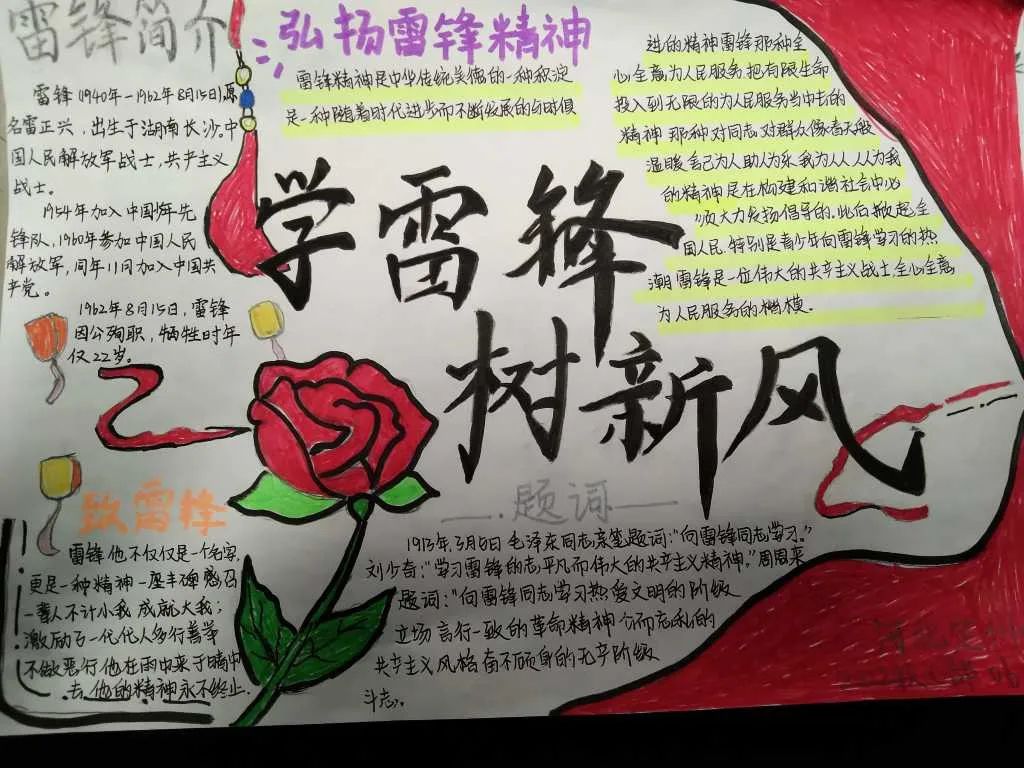 雷锋简介
雷锋（1940年-1962年8月15日）原
名雷正兴，出生于湖南长沙。中
国人民解放军战士，共产主义
战士。
1954年加入中国少年先
锋队，1960年参加中国人民
解放军，同年11月加入中国共
产党。
1962年8月15日，雷锋
因公殉职，牺牲时年
仅22岁。
弘扬雷锋精神
雷锋精神是中华传统美德的一种积淀
是一种随着时代进步而不断发展的与时俱
进的精神雷锋那种全
心全意为人民服务把有限生命
投入到无限的为人民服务当中去的
精神那种对同志对群众像春天般
温暖舍己为人助人为乐我为人人人人为我
的精神是在构建和谐社会中必
须大力发扬倡导的.此后掀起全
国人民特别是青少年向雷锋学习的热
潮雷锋是一位伟大的共产主义战士全心全意
为人民服务的楷模.
学雷锋
树新风
致雷锋
雷锋他不仅仅是一个名字
更是一种精神一座丰碑感召
一辈人不计小我成就大我；
激励了一代代人多行善举
不做恶行他在雨中来于暗中
去他的精神永不终止.
题词
1913年.3月5日毛泽东同志亲笔题词："向雷锋同志学习."
刘少奇："学习雷锋的志平凡而伟大的共产主义精神."周周来
题词："向雷锋同志学习热爱文明的阶级
立场言行一致的革命精神公而忘私的
共产主义风格奋不顾身的无产阶级
斗志。